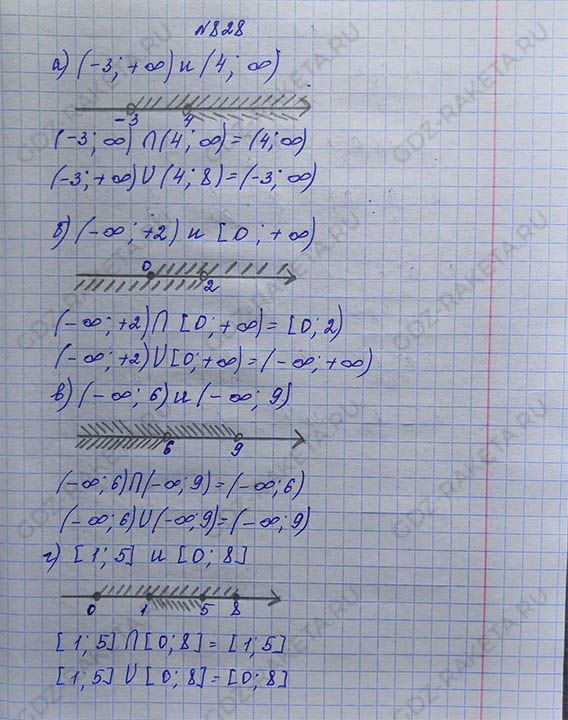 №828
а) (-3; +∞) и (4; ∞)
-3 4
(-3; ∞) ∩ (4; ∞) = (4; ∞)
(-3; +∞) U (4; 8) = (-3; ∞)
б) (-∞; +2) и [0; +∞)
0 2
(-∞; +2) ∩ [0; +∞) = [0; 2)
(-∞; +2) U [0; +∞) = (-∞; +∞)
в) (-∞; 6) и (-∞; 9)
6 9
(-∞; 6) ∩ (-∞; 9) = (-∞; 6)
(-∞; 6) U (-∞; 9) = (-∞; 9)
г) [1; 5] и [0; 8]
0 1 5 8
[1; 5] ∩ [0; 8] = [1; 5]
[1; 5] U [0; 8] = [0; 8]
GDZ-RAKETA.RU